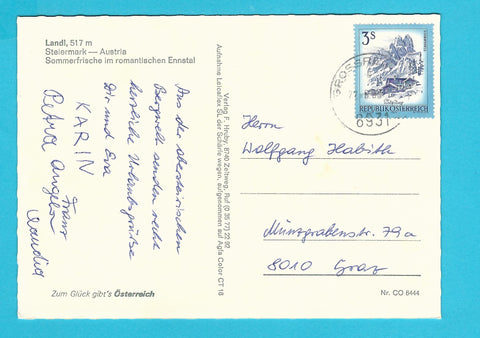 Landl, 517 m
Steiermark — Austria
Sommerfrische im romantischen Ennstal
Aus der obersteirischen
Bergwelt senden recht
herzliche Urlaubsgrüße
Dir und Eva
Franz
KARIN
Angela
Petra
Claudia
Zum Glück gibt's Österreich
Aufnahme Leicaflex SL, der Schärfe wegen, aufgenommen auf Agfa Color CT 18
Verlag F. 8740 Zeltweg, Ruf (0 35 77) 22 92
3S
REPUBLIK ÖSTERREICH
8931
Herrn
Wolfgang Habith
Münzgrabenstr. 79a
8010 Graz
Nr. CO 6444